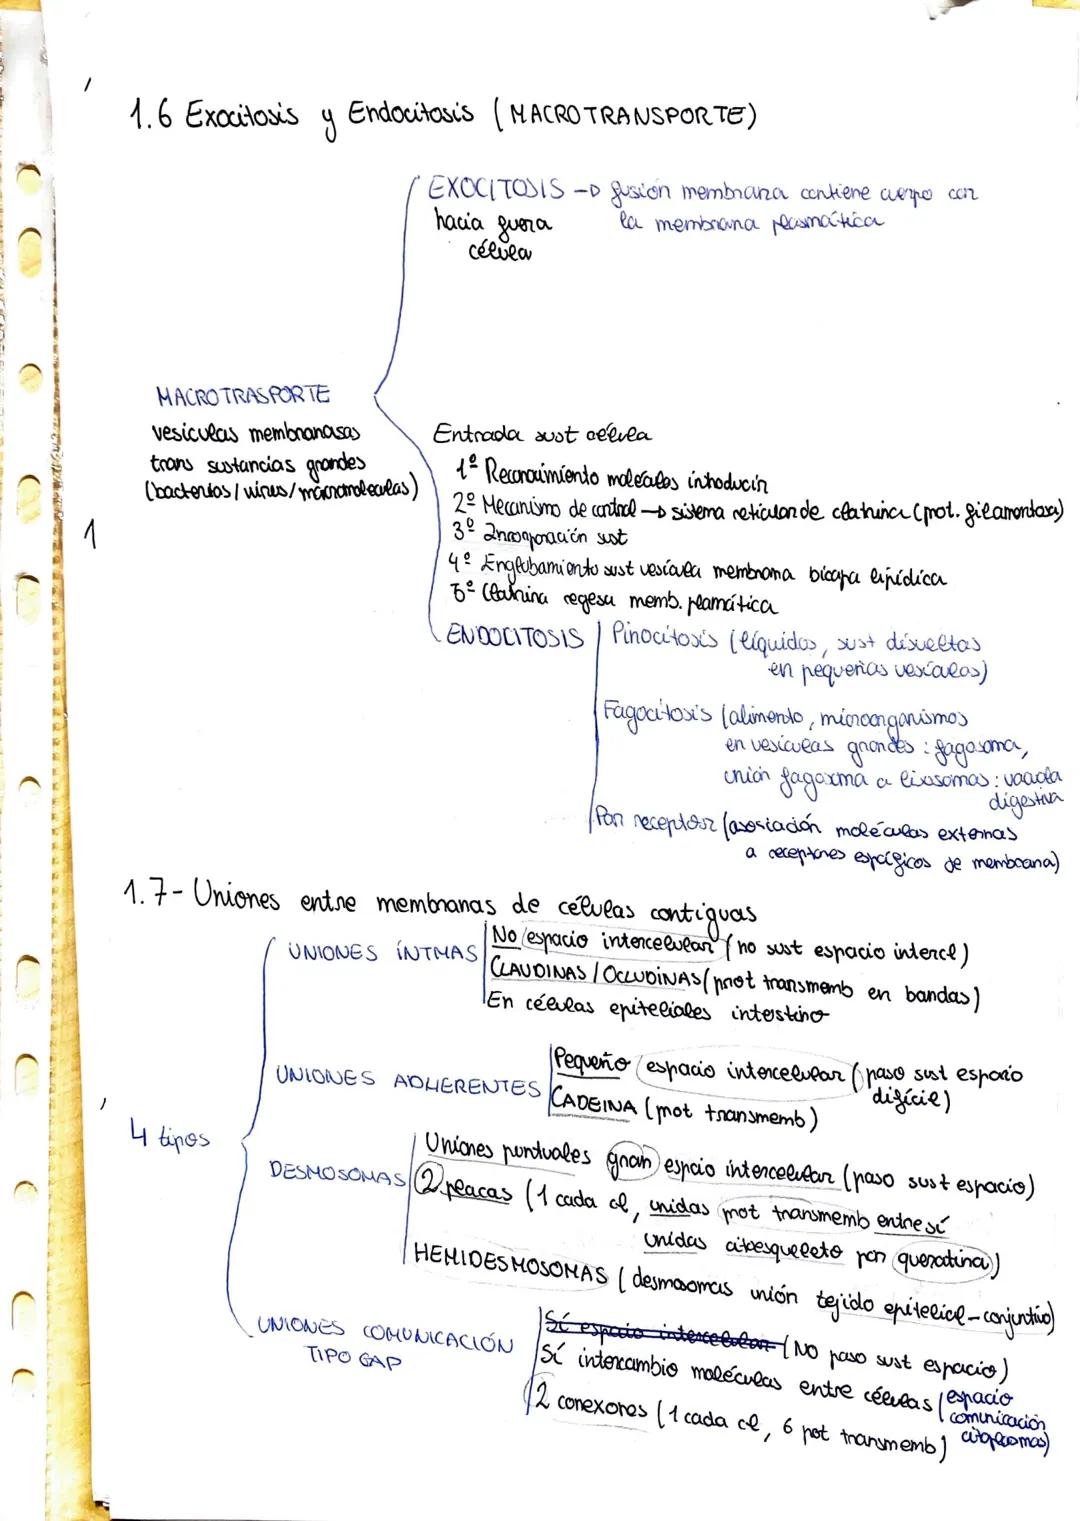 1.6 Exocitosis y Endocitosis (MACROTRANSPORTE)
EXOCITOSIS → fusión membrana contiene cuerpo con
hacia fuera la membrana plasmática
célula
MACROTRASPORTE
vesículas membranosas
trans sustancias grandes
(bacterias / virus / macromoléculas)
Entrada sust célula
1º Reconocimiento moléculas introducir
2º Mecanismo de control → sistema reticular de clatrina (prot. filamentosa)
3º Incorporación sust
4º Englobamiento sust vesícula membrana bicapa lipídica
5º Clatrina regesa memb. plamática
1
ENDOCITOSIS
Pinocitosis (líquidos, sust disueltas
en pequeñas vesículas)
Fagocitosis (alimento, microorganismos
en vesículas grandes: fagosoma,
unión fagosoma a lisosomas: vacuola
digestiva
Por receptor (asociación moléculas externas
a receptores espcíficos de membrana)
1.7- Uniones entre membranas de células contiguas
4 tipos
UNIONES ÍNTMAS
No espacio intercelular (no sust espacio intercel)
CLAUDINAS / OCCLUDINAS (prot transmemb en bandas)
En células epiteliales intestino
UNIONES ADHERENTES
Pequeño espacio intercelular (paso sust espacio
difícil)
CADEINA (prot transmemb)
DESMOSOMAS
Uniones puntuales gran espcio intercelular (paso sust espacio)
2 placas (1 cada cel, unidas prot transmemb entre sí
unidas citoesqueleto por queratina)
HEMIDESMOSOMAS (desmosomas unión tejido epitelial-conjuntivo)
UNIONES COMUNICACIÓN
TIPO GAP
Sí espacio intercelular (NO paso sust espacio)
Sí intercambio moléculas entre células (espacio
comunicación
citoplasmas)
2 conexones (1 cada cel, 6 pot transmemb)